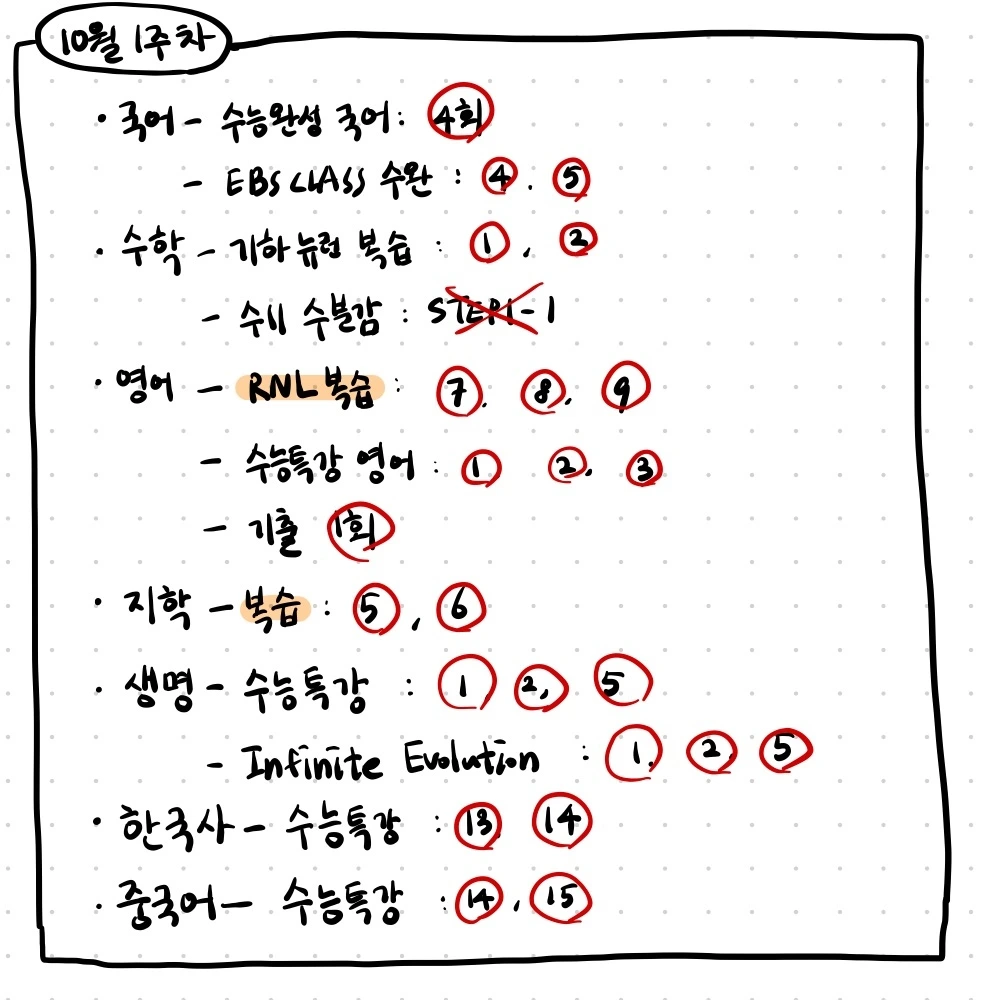 10월 1주차
• 국어 - 수능완성 국어: 4회
- EBS CLASS 수완 : 4. 5
• 수학 - 기하 뉴런 복습 : 1, 2
- 수II 수분감 : STEP1-1
• 영어 - RNL 복습 : 7. 8. 9
- 수능특강 영어 : 1 2. 3
- 기출 1회
• 지학 - 복습 : 5, 6
• 생명 - 수능특강 : 1 2, 5
- Infinite Evolution : 1. 2. 5
• 한국사 - 수능특강 : 13 14
• 중국어 - 수능특강 : 14, 15